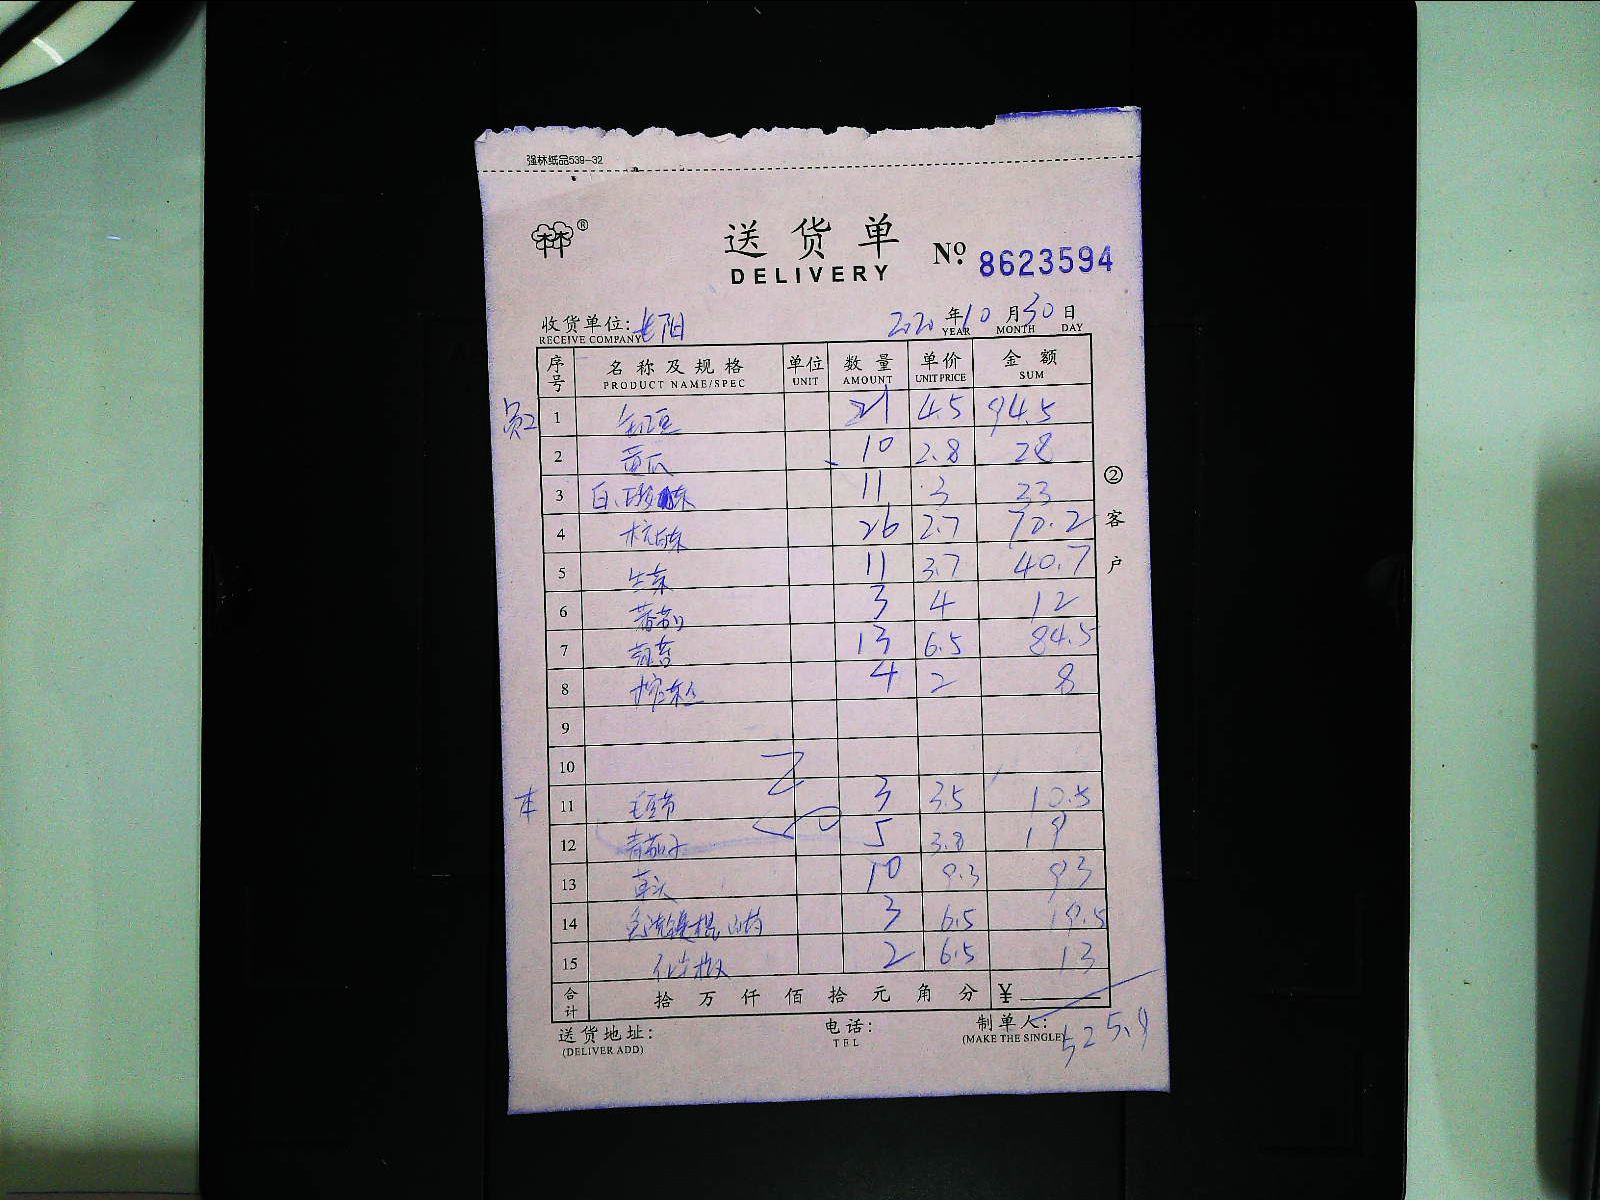 强林纸品539-32
林®
送货单 No. 8623594
DELIVERY
收货单位: 长阳 2020 年 10 月 30 日
RECEIVE COMPANY YEAR MONTH DAY
序号 名称及规格 单位 数量 单价 金额
PRODUCT NAME/SPEC UNIT AMOUNT UNIT PRICE SUM
员工 1 豇豆 21 4.5 94.5
2 黄瓜 10 2.8 28
3 白 11 3 33
4 杭白菜 26 2.7 70.2
5 生菜 11 3.7 40.7
6 番茄 3 4 12
7 13 6.5 84.5
8 榨菜丝 4 2 8
9
10
11 毛豆节 3 3.5 10.5
12 青茄子 5 3.8 19
13 草头 10 9.3 93
14 山药 3 6.5 19.5
15 2 6.5 13
合计 拾 万 仟 佰 拾 元 角 分 ¥
525.9
送货地址: 电话: 制单人:
(DELIVER ADD) TEL (MAKE THE SINGLE)
②客户